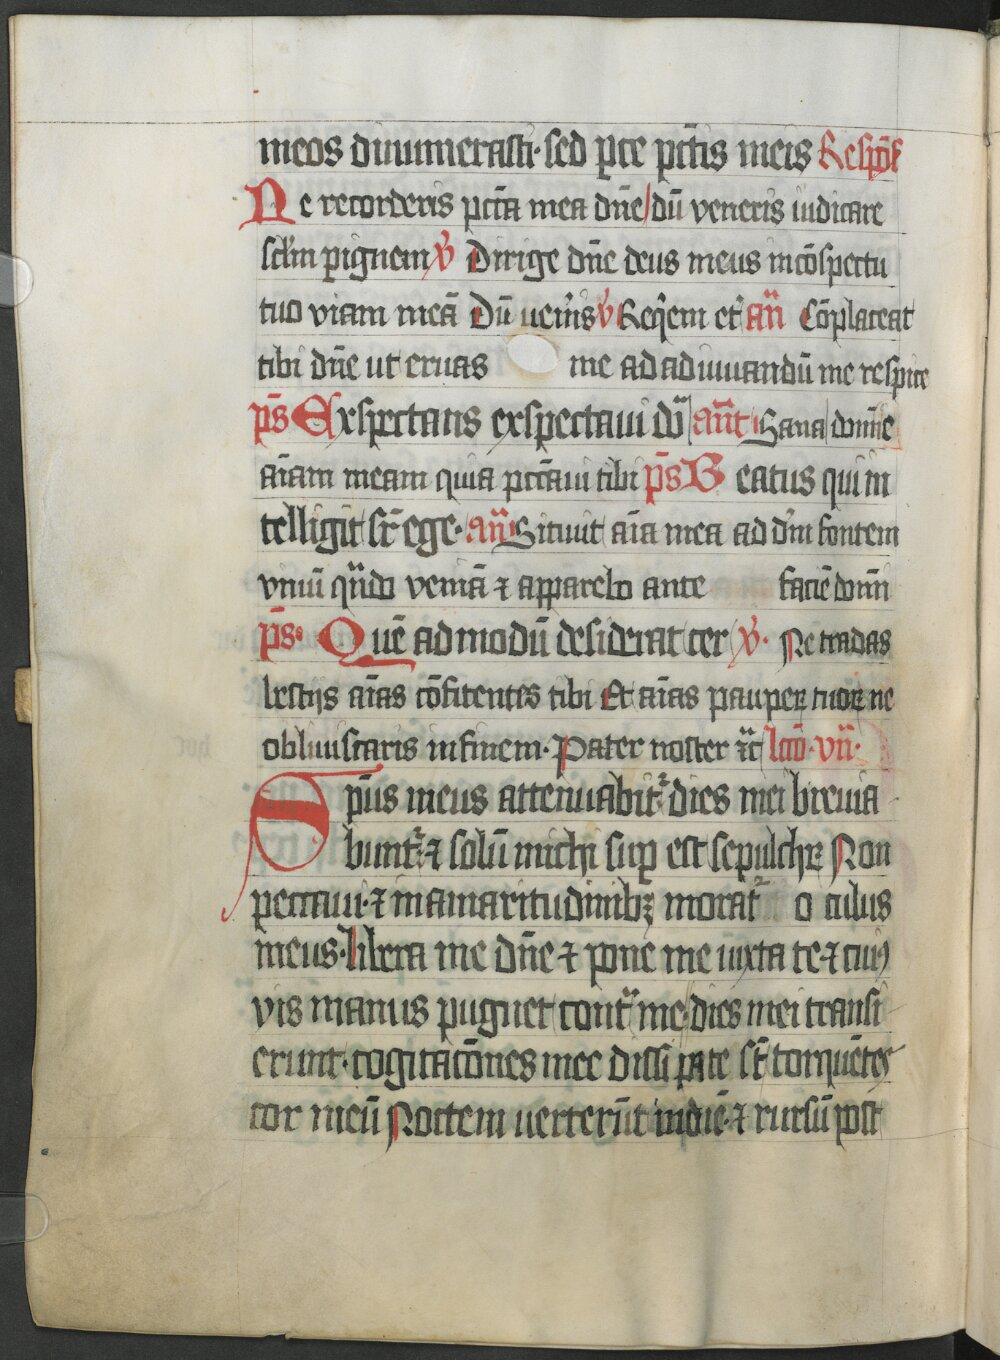 meos dinumerasti· sed pce pctīs meis Respōs
Ne recorderis pctā mea dn̄e dū veneris iudicare
sclm̄ p ignem v̄ Dirige dn̄e deus meus in cōspectu
tuo viam meā Dū uen̄is v̄ Req̄em et̄ an̄ Cōplaceat
tibi dn̄e ut eruas me ad adiuuandū me respice
ps̄ Exspectans exspectaui dō an̄t Sana domīe
aīam meam quia pctāui tibi ps̄ Beatus qui in
telligit sr̄ ege· an̄ Sitiuit aīa mea ad dm̄ fontem
viuū qn̄do veniā ⁊ apparebo ante faciē domī
ps̄· Quē ad modū desiderat cer v̄· Ne tradas
bestijs aīas cōfitentes tibi Et aīas pauperꝝ tuoꝝ ne
obliuiscaris in finem· Pater noster ⁊c̄ lc̄o· vij·
Sp̄us meus attenuabit᷑ dies mei breuia
bunt᷑ ⁊ solū michi sup est sepulchꝝ Non
peccaui· ⁊ in amaritudinibꝫ morat᷑ oculus
meus· libera me dn̄e ⁊ pone me iuxta te ⁊ cuiꝰ
vis manus pugnet contᷓ me dies mei transi
erunt· cogitacōnes mee dissipate st̄ torquētes
cor meū Noctem uerterūt in diē· ⁊ rursū post